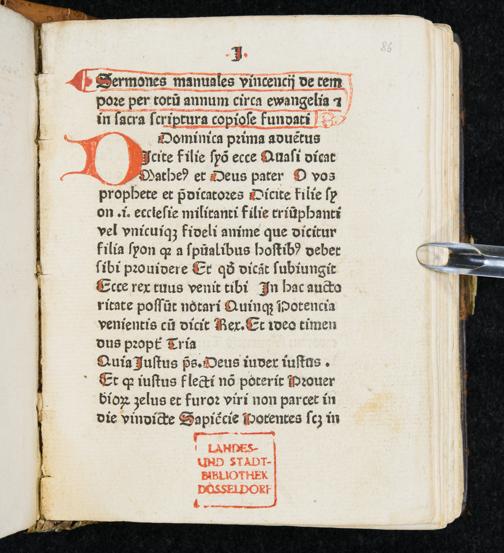 86
·I·
Sermones manuales vincencij de tem
pore per totū annum circa ewangelia ⁊
in sacra scriptura copiose fundati
Dominica prima aduētus
Dicite filie syō ecce Quasi dicat
Matheꝰ et Deus pater O vos
prophete et p̄dicatores Dicite filie sy
on .i. ecclesie militanti filie triūphanti
vel vnicuiqꝫ fideli anime que dicitur
filia syon ꝙ a spūalibus hostibꝰ debet
sibi prouidere Et qđ dicāt subiungit
Ecce rex tuus venit tibi In hac aucto
ritate possūt nōtari Quinqꝫ Potencia
venientis cū dicit Rex. Et ideo timen
dus propt̄ Tria
Quia Justus p̄s. Deus iudex iustus .
Et ꝙ iustus flecti nō poterit Prouer
bioꝝ zelus et furor viri non parcet in
die vindicte Sapiēcie Potentes scꝫ in
LANDES-
UND STADT-
BIBLIOTHEK
DÜSSELDORF